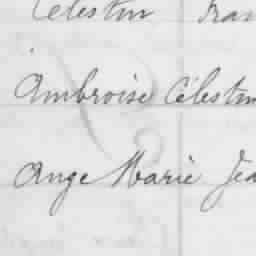 Célestin Fran
Ambroise Célestin
Ange Marie Jea